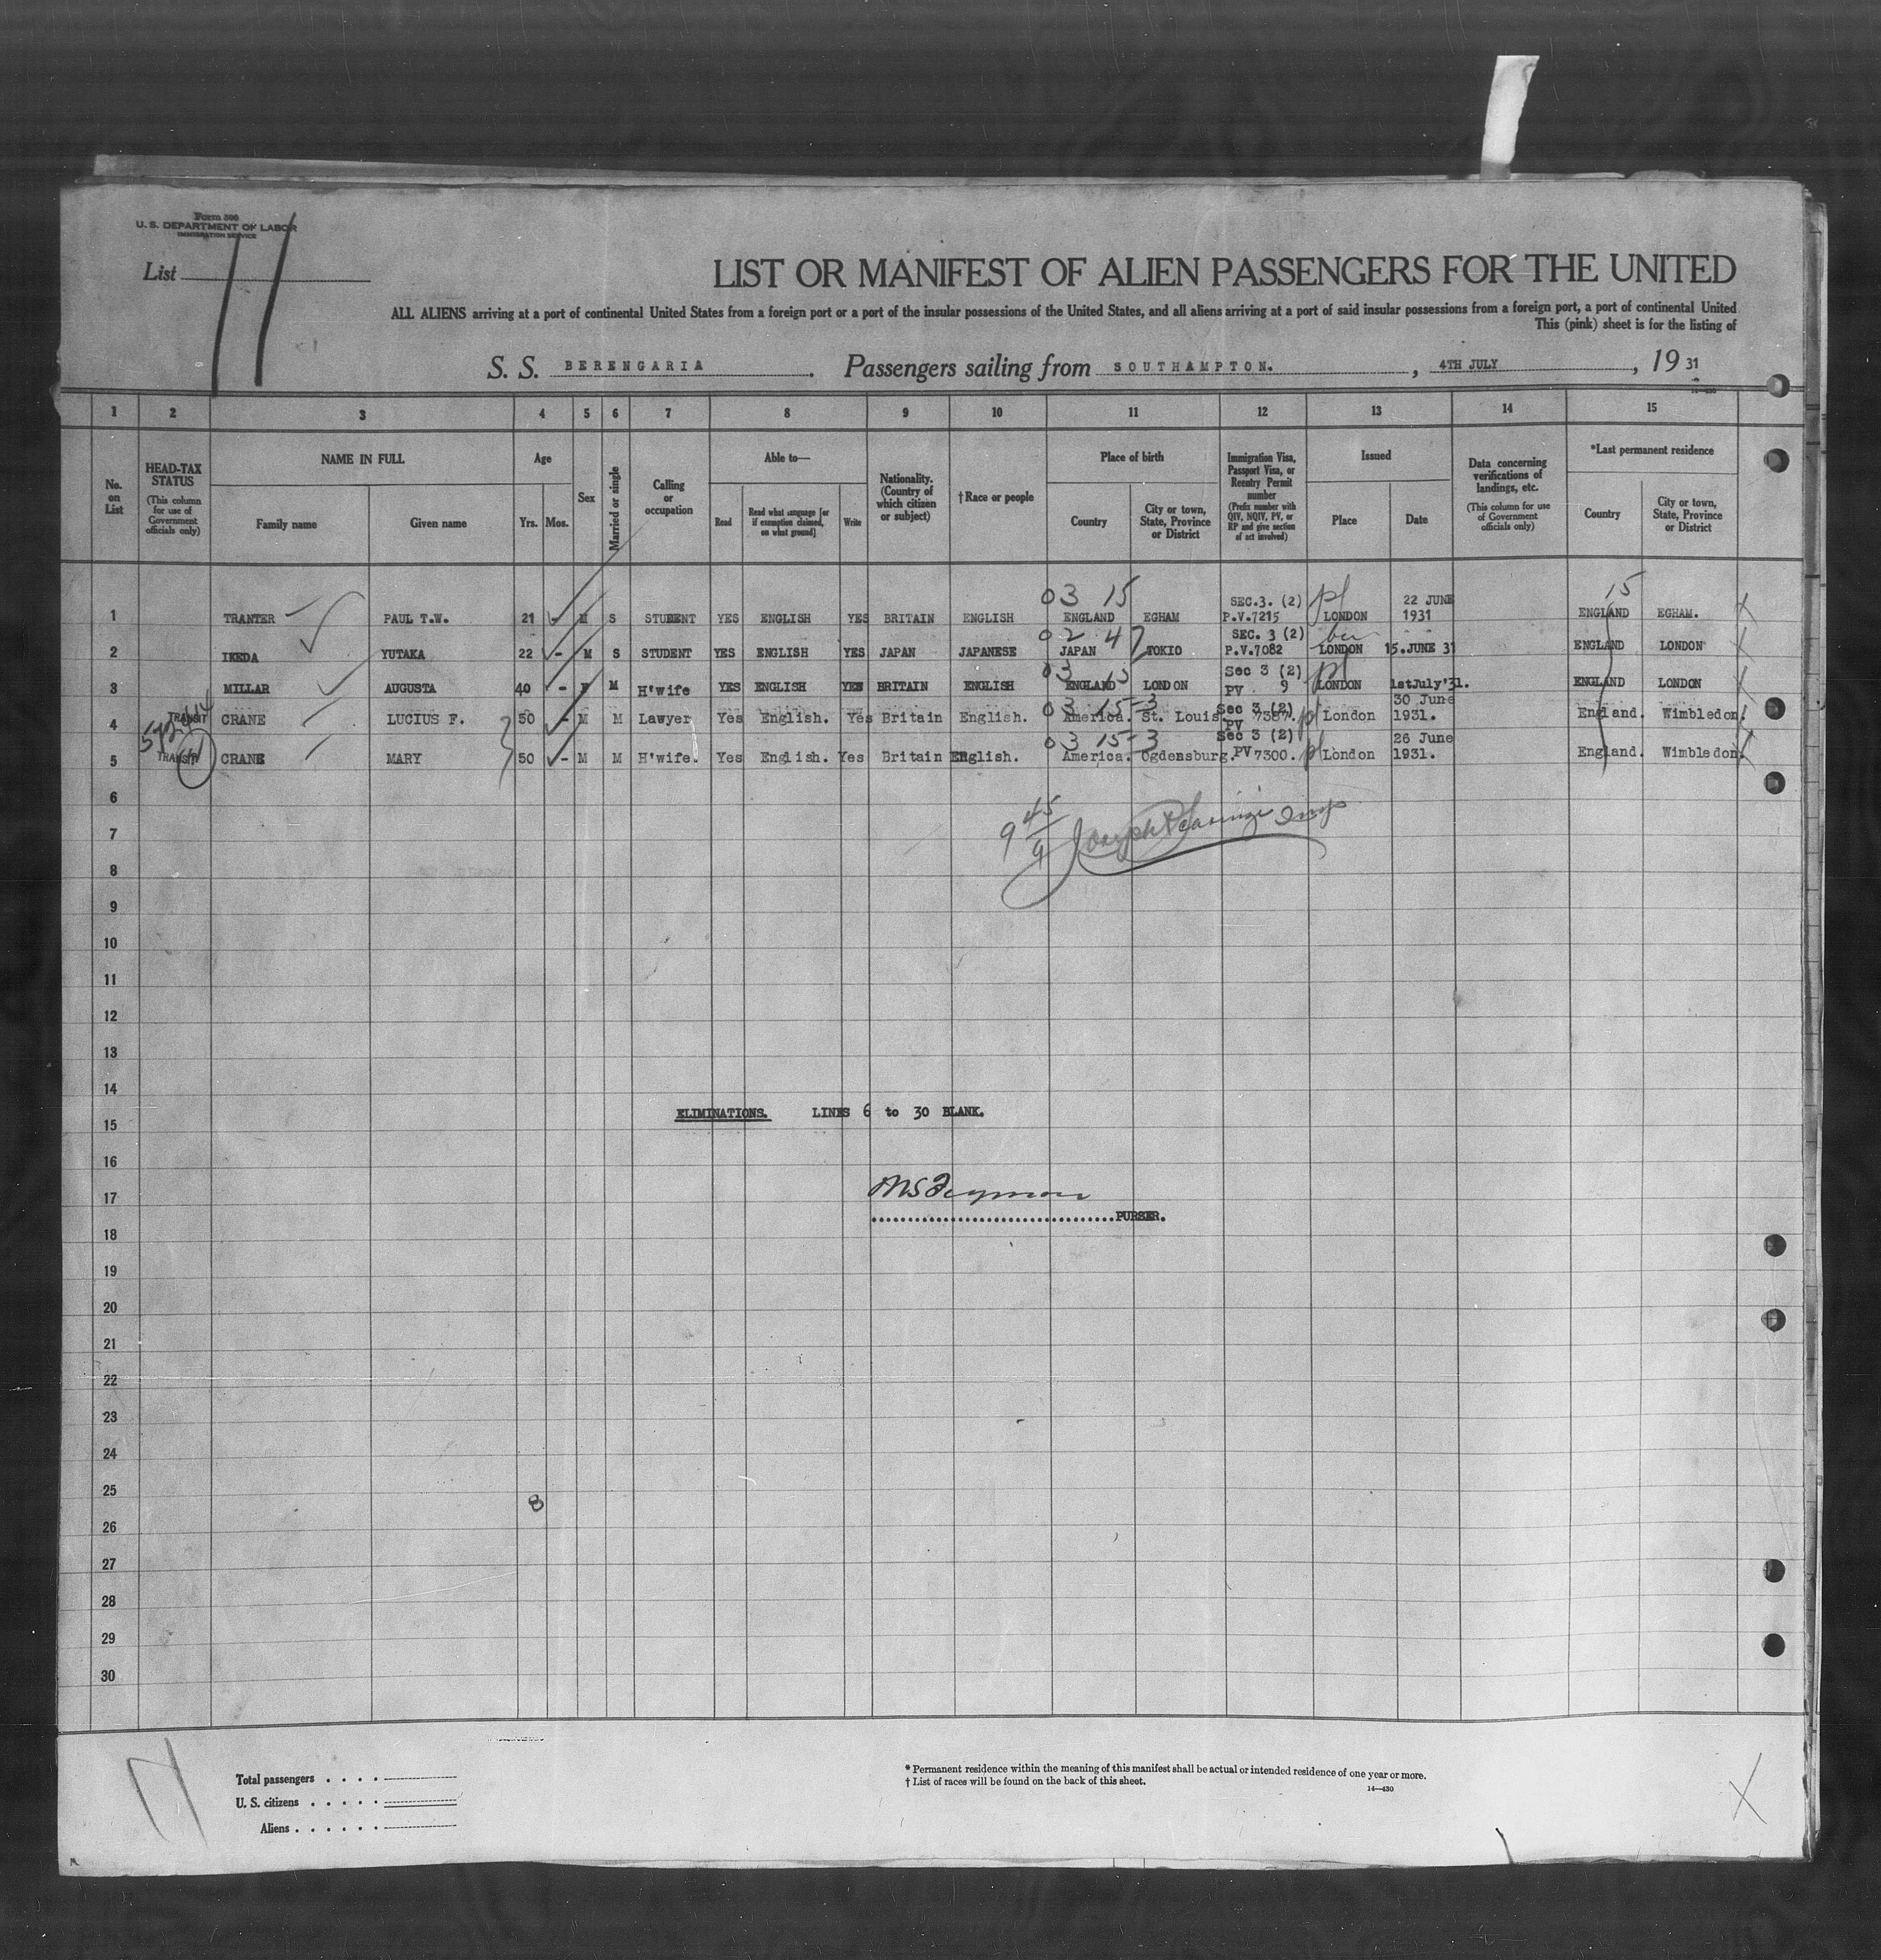 Form 500
U. S. DEPARTMENT OF LABOR
IMMIGRATION SERVICE
List
11
LIST OR MANIFEST OF ALIEN PASSENGERS FOR THE UNITED
ALL ALIENS arriving at a port of continental United States from a foreign port or a port of the insular possessions of the United States, and all aliens arriving at a port of said insular possessions from a foreign port, a port of continental United
This (pink) sheet is for the listing of
S. S. BERENGARIA. Passengers sailing from SOUTHAMPTON., 4TH JULY, 19 31
1 2 3 4 5 6 7 8 9 10 11 12 13 14 15
No. on List
HEAD-TAX STATUS (This column for use of Government officials only)
NAME IN FULL
Family name Given name
Age
Yrs. Mos.
Sex
Married or single
Calling or occupation
Able to—
Read Read what language [or if exemption claimed, on what ground] Write
Nationality. (Country of which citizen or subject)
†Race or people
Place of birth
Country City or town, State, Province or District
Immigration Visa, Passport Visa, or Reentry Permit number (Prefix number with QIV, NQIV, PV, or RP and give section of act involved)
Issued
Place Date
Data concerning verifications of landings, etc. (This column for use of Government officials only)
*Last permanent residence
Country City or town, State, Province or District
03 15 15
1 TRANTER PAUL T.W. 21 - M S STUDENT YES ENGLISH YES BRITAIN ENGLISH ENGLAND EGHAM SEC.3. (2) P.V.7215 LONDON 22 JUNE 1931 ENGLAND EGHAM.
02 47
2 IKEDA YUTAKA 22 - M S STUDENT YES ENGLISH YES JAPAN JAPANESE JAPAN TOKIO SEC. 3 (2) P.V.7082 LONDON 15.JUNE 31 ENGLAND LONDON
03 15
3 MILLAR AUGUSTA 40 - F M H'wife YES ENGLISH YES BRITAIN ENGLISH ENGLAND LONDON Sec 3 (2) PV 9 LONDON 1stJuly'31. ENGLAND LONDON
03 15-3
4 TRANSIT CRANE LUCIUS F. 50 - M M Lawyer Yes English. Yes Britain English. America. St. Louis. Sec 3 (2) PV 7387. London 30 June 1931. England. Wimbledon.
03 15-3
5 TRANSIT CRANE MARY 50 - M M H'wife. Yes English. Yes Britain English. America. Ogdensburg. Sec 3 (2) PV 7300. London 26 June 1931. England. Wimbledon.
6
7
8
9
10
11
12
13
14
ELIMINATIONS. LINES 6 to 30 BLANK.
15
16
17
PURSER.
18
19
20
21
22
23
24
25
8
26
27
28
29
30
Total passengers
U. S. citizens
Aliens
* Permanent residence within the meaning of this manifest shall be actual or intended residence of one year or more.
† List of races will be found on the back of this sheet.
14—430